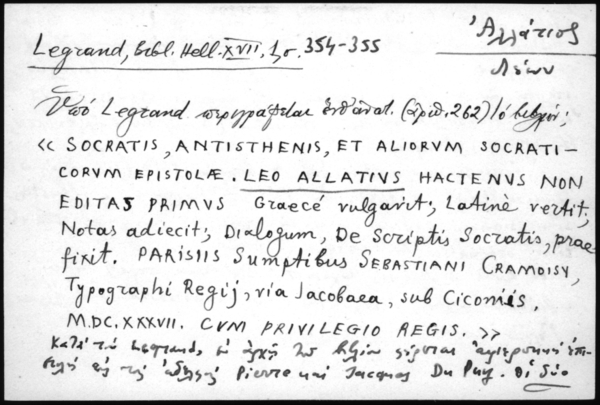 Legrand, Bibl. Hell. XVII, 1, σ. 354-355
Ἀλλάτιος
Λέων
Ὑπό Legrand περιγράφεται (ἀριθ. 262) τό βιβλίον:
« SOCRATIS, ANTISTHENIS, ET ALIORVM SOCRATI-
CORVM EPISTOLÆ. LEO ALLATIVS HACTENVS NON
EDITAS PRIMVS Graecé vulgavit; Latinè vertit;
Notas adiecit; Dialogum, De Scriptis Socratis, prae
fixit. PARISIIS Sumptibus SEBASTIANI CRAMOISY,
Typographi Regij, via Jacobaea, sub Ciconiis.
M.DC.XXXVII. CVM PRIVILEGIO REGIS. »
Κατά τόν Legrand, ἐν ἀρχῇ τοῦ βιβλίου ἀφιερωτική ἐπι-
στολή εἰς τούς ἀδελφούς Pierre καί Jacques Du Puy. Οἱ δύο